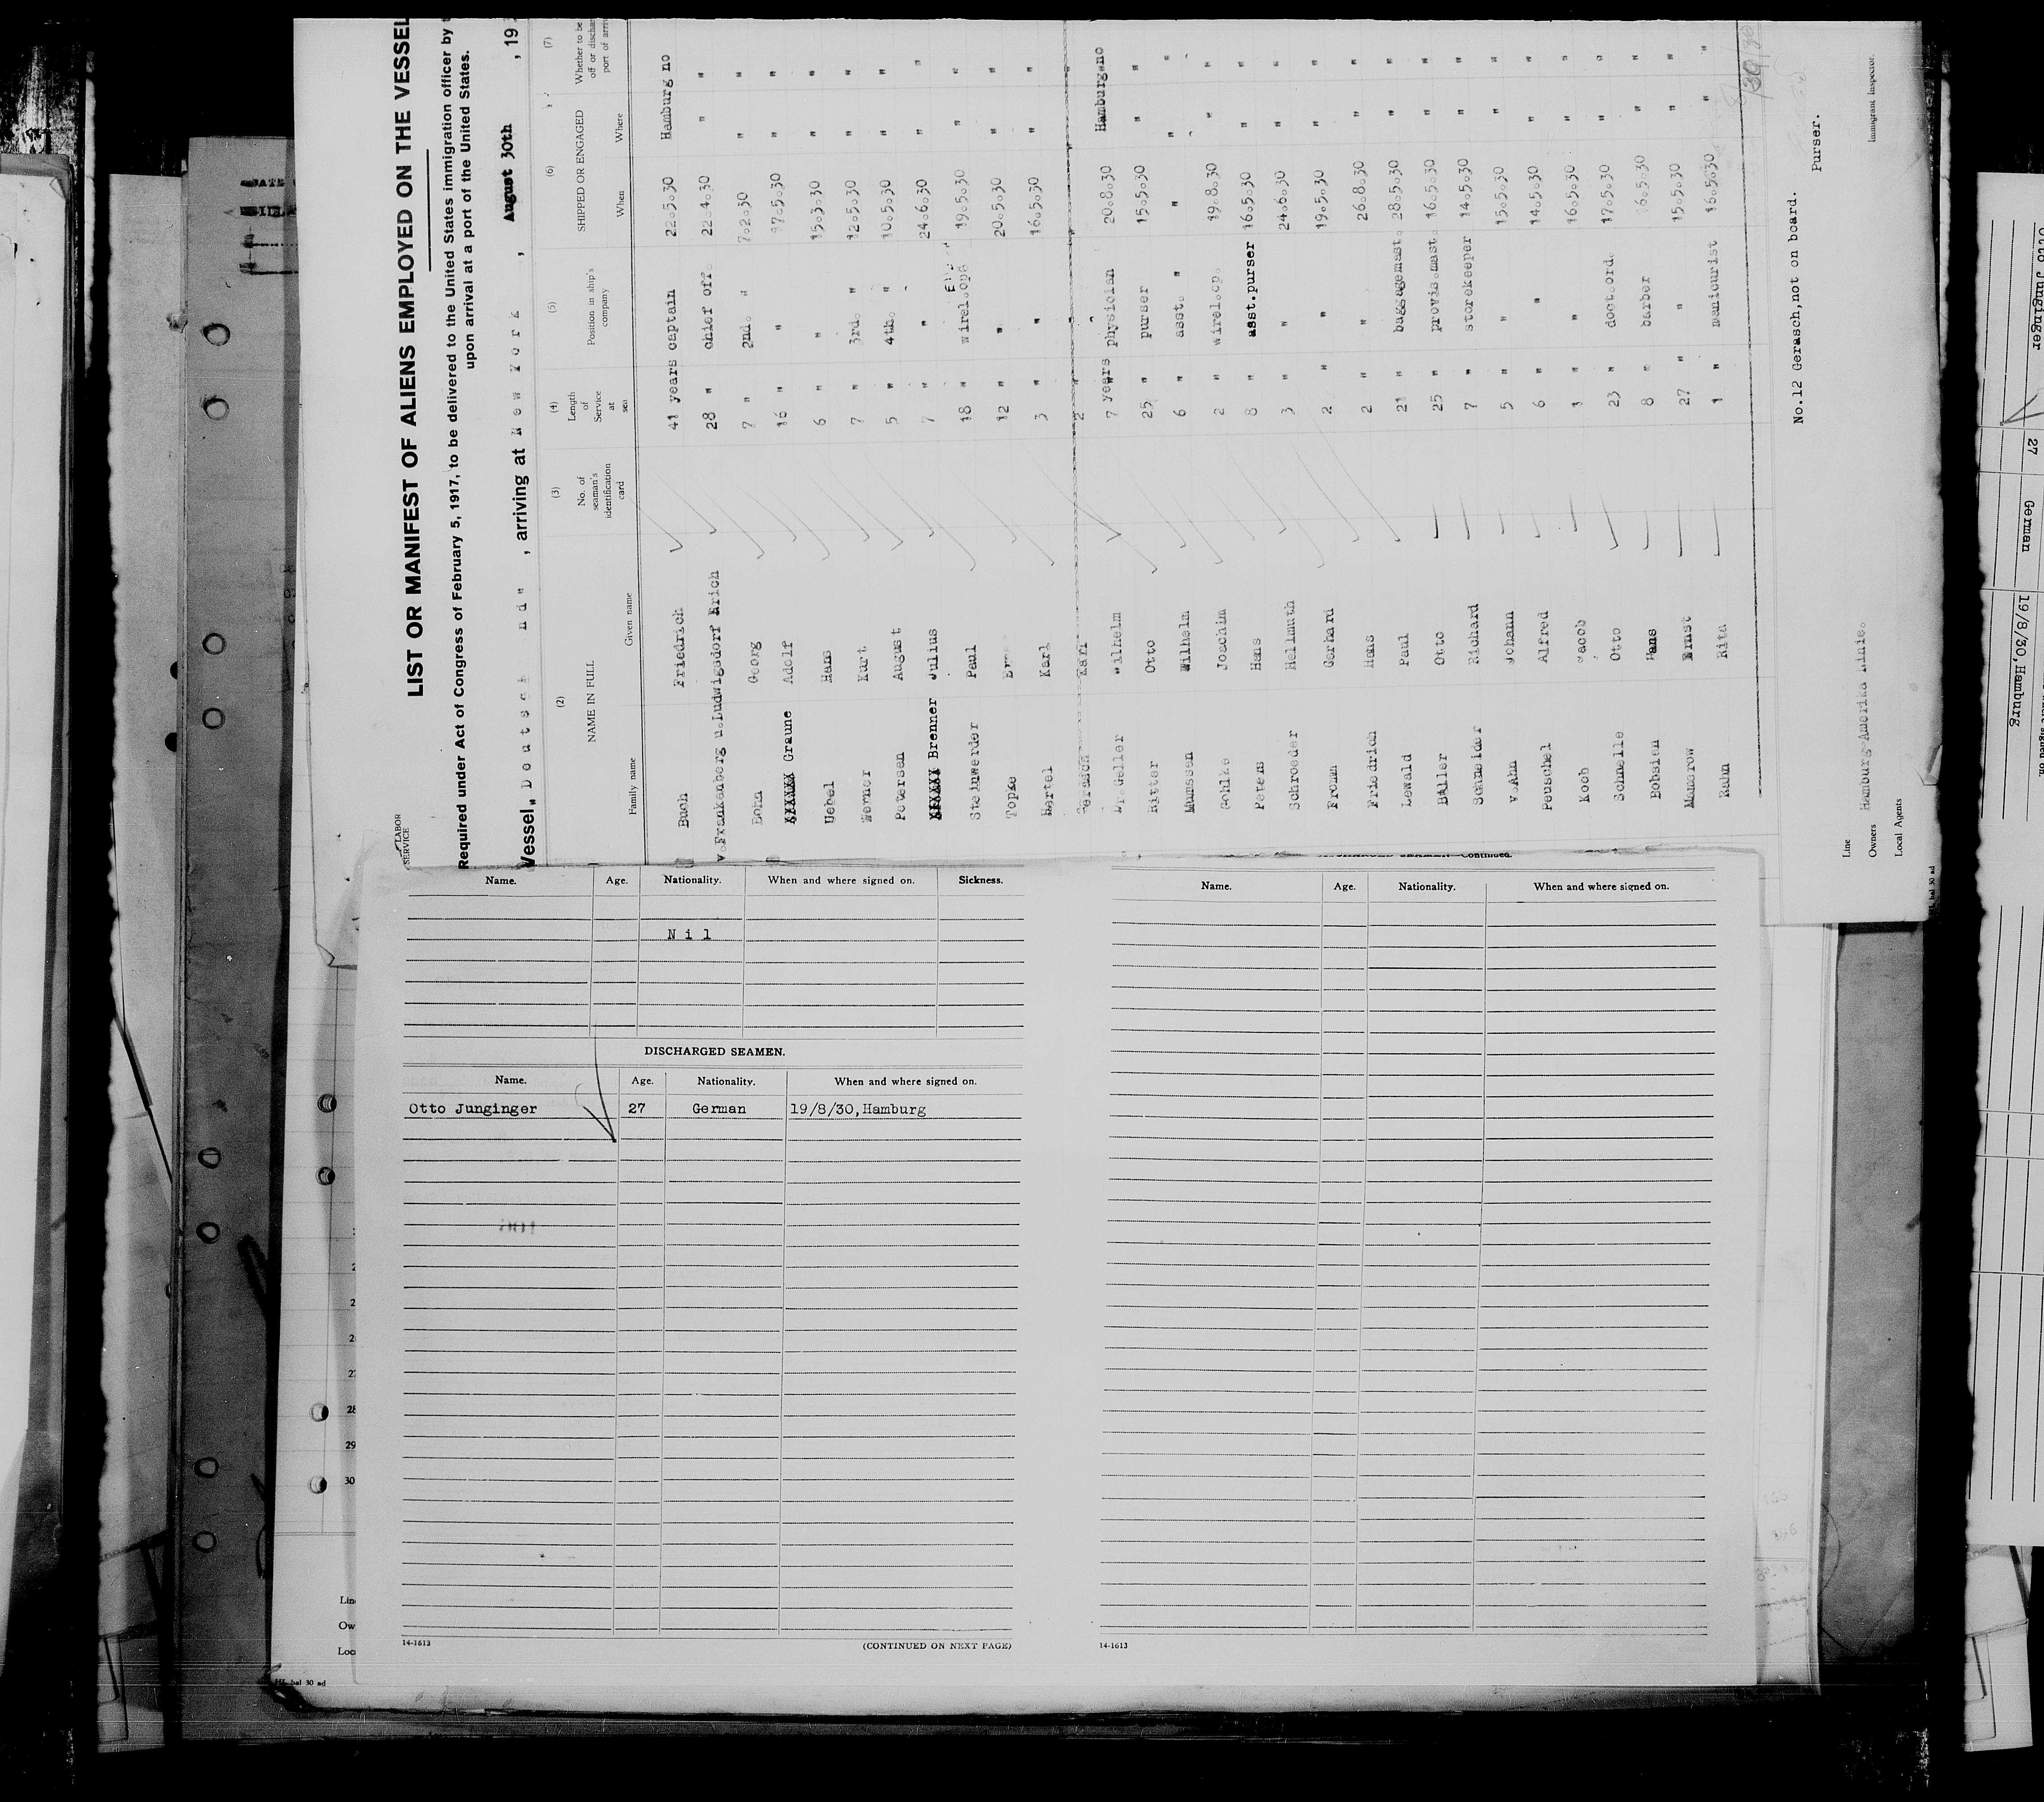 LIST OR MANIFEST OF ALIENS EMPLOYED ON THE VESSEL
Required under Act of Congress of February 5, 1917, to be delivered to the United States immigration officer by
upon arrival at a port of the United States.
Vessel "Deutschland", arriving at New York, August 30th, 19
LABOR
SERVICE
(2) (3) (4) (5) (6) (7)
NAME IN FULL
Family name Given name
No. of seaman's identification card
Length of Service at sea
Position in ship's company
SHIPPED OR ENGAGED
When Where
Whether to be
off or dischar
port of arri
Buch Friedrich 41 years captain 22.3.30 Hamburg no
v.Frankenberg u.Ludwigsdorf Erich 28 " chief off. 22.4.30 " "
Bohn Georg 7 " 2nd. " 7.2.30 " "
XXXXXX Graune Adolf 16 " " 17.5.30 " "
Uebel Hans 6 " " 15.3.30 " "
Werner Kurt 7 " 3rd. " 12.5.30 " "
Petersen August 5 " 4th. " 10.5.30 " "
Brenner Julius 7 " " 24.6.30 " "
Steinwerder Paul 18 " wirel.op. 19.5.30 " "
Topke 12 " " 20.5.30 " "
Hartel Karl 3 " " 16.5.30 " "
Gerasch Karl 2
Dr.Geller Wilhelm 7 years physician 20.8.30 Hamburg no
Ritter Otto 25 " purser 15.5.30 " "
Mumssen Wilhelm 6 " asst. " " " "
Gohlke Joachim 2 " wirel.op. 19.8.30 " "
Peters Hans 8 " asst.purser 16.5.30 " "
Schroeder Hellmuth 3 " " 24.6.30 " "
Froman Gerhard 2 " " 19.5.30 " "
Friedrich Hans 2 " " 26.8.30 " "
Lewald Paul 21 " baggagemast. 28.5.30 " "
Biller Otto 25 " provis.mast. 16.5.30 " "
Schneider Richard 7 " storekeeper 14.5.30 " "
v.Ahn Johann 5 " " 15.5.30 " "
Peuschel Alfred 6 " " 14.5.30 " "
Koob Jacob 1 " " 16.5.30 " "
Schnelle Otto 23 " doct.ord. 17.5.30 " "
Bobsien Hans 8 " barber 16.5.30 " "
Mamerow Ernst 27 " " 15.5.30 " "
Rahn Rita 1 " manicurist 16.5.30 " "
No.12 Gerasch,not on board.
Purser.
Line Hamburg-Amerika Linie.
Owners
Local Agents
Immigrant Inspector.
Continued.
Name. Age. Nationality. When and where signed on. Sickness.
Nil
DISCHARGED SEAMEN.
Name. Age. Nationality. When and where signed on.
Otto Junginger 27 German 19/8/30,Hamburg
14-1613 (CONTINUED ON NEXT PAGE)
Name. Age. Nationality. When and where signed on.
14-1613
28
29
30
Otto Junginger 27 German 19/8/30,Hamburg